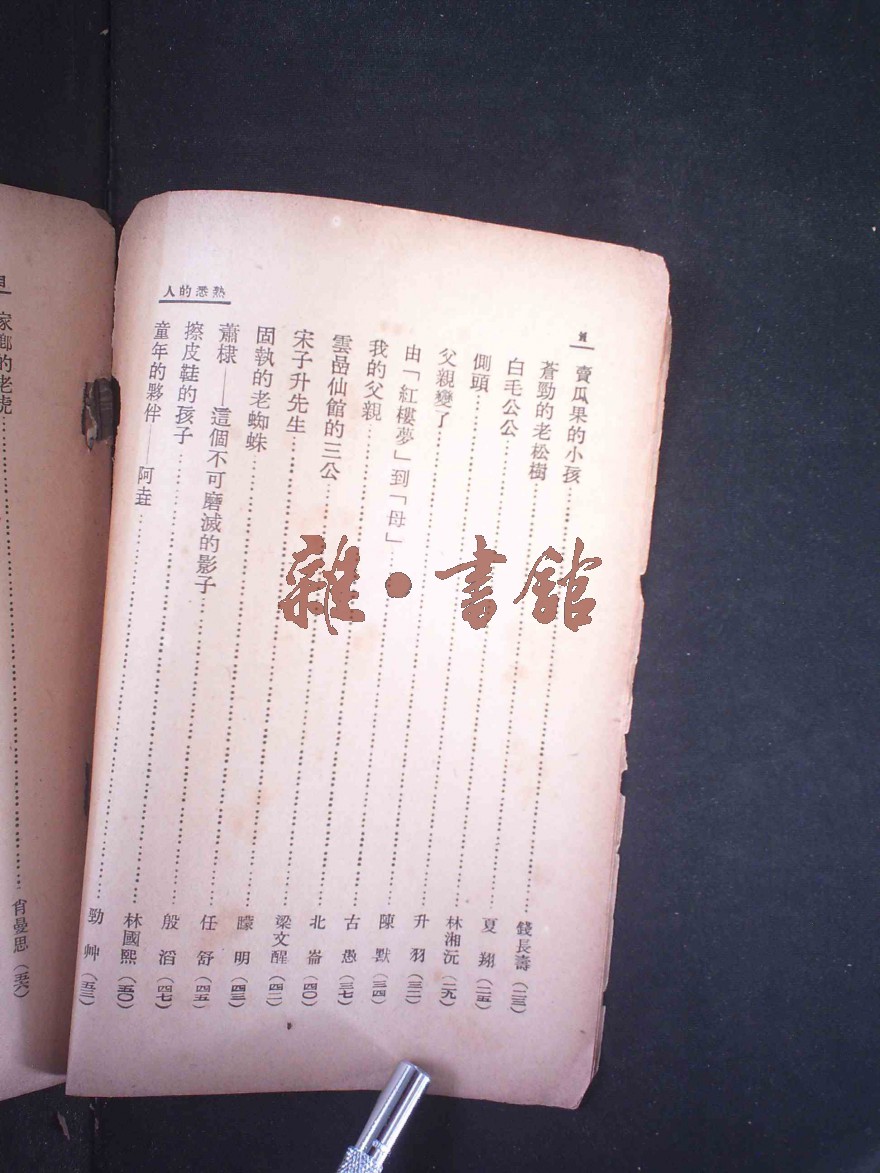 熟悉的人
賣瓜果的小孩……錢長壽（二三）
蒼勁的老松樹……夏翔（二五）
白毛公公……林湘沅（二九）
側頭……升羽（三二）
父親變了……陳默（三四）
由「紅樓夢」到「母」……古愚（三七）
我的父親……北崙（四〇）
雲喦仙館的三公……梁文醒（四二）
宋子升先生……矇明（四三）
固執的老蜘蛛……任舒（四五）
蕭棣——這個不可磨滅的影子……殷滔（四七）
擦皮鞋的孩子……林國熙（五〇）
童年的夥伴——阿垚……勁艸（五三）
家鄉的老虎……肖曼思（五六）
雜·書館